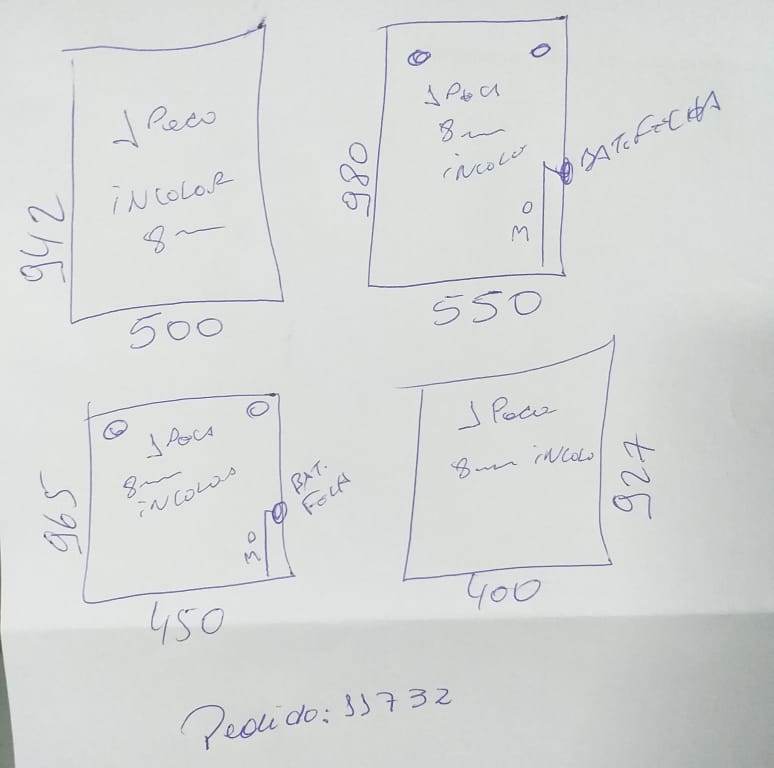 1 Peça
incolor
8mm
942
500
1 Peça
8mm
incolo
980
30
BAT. FECHA
550
1 Peça
8mm
incolor
965
30
BAT.
FECHA
450
1 Peça
8mm incolo
927
400
Pedido: 11732